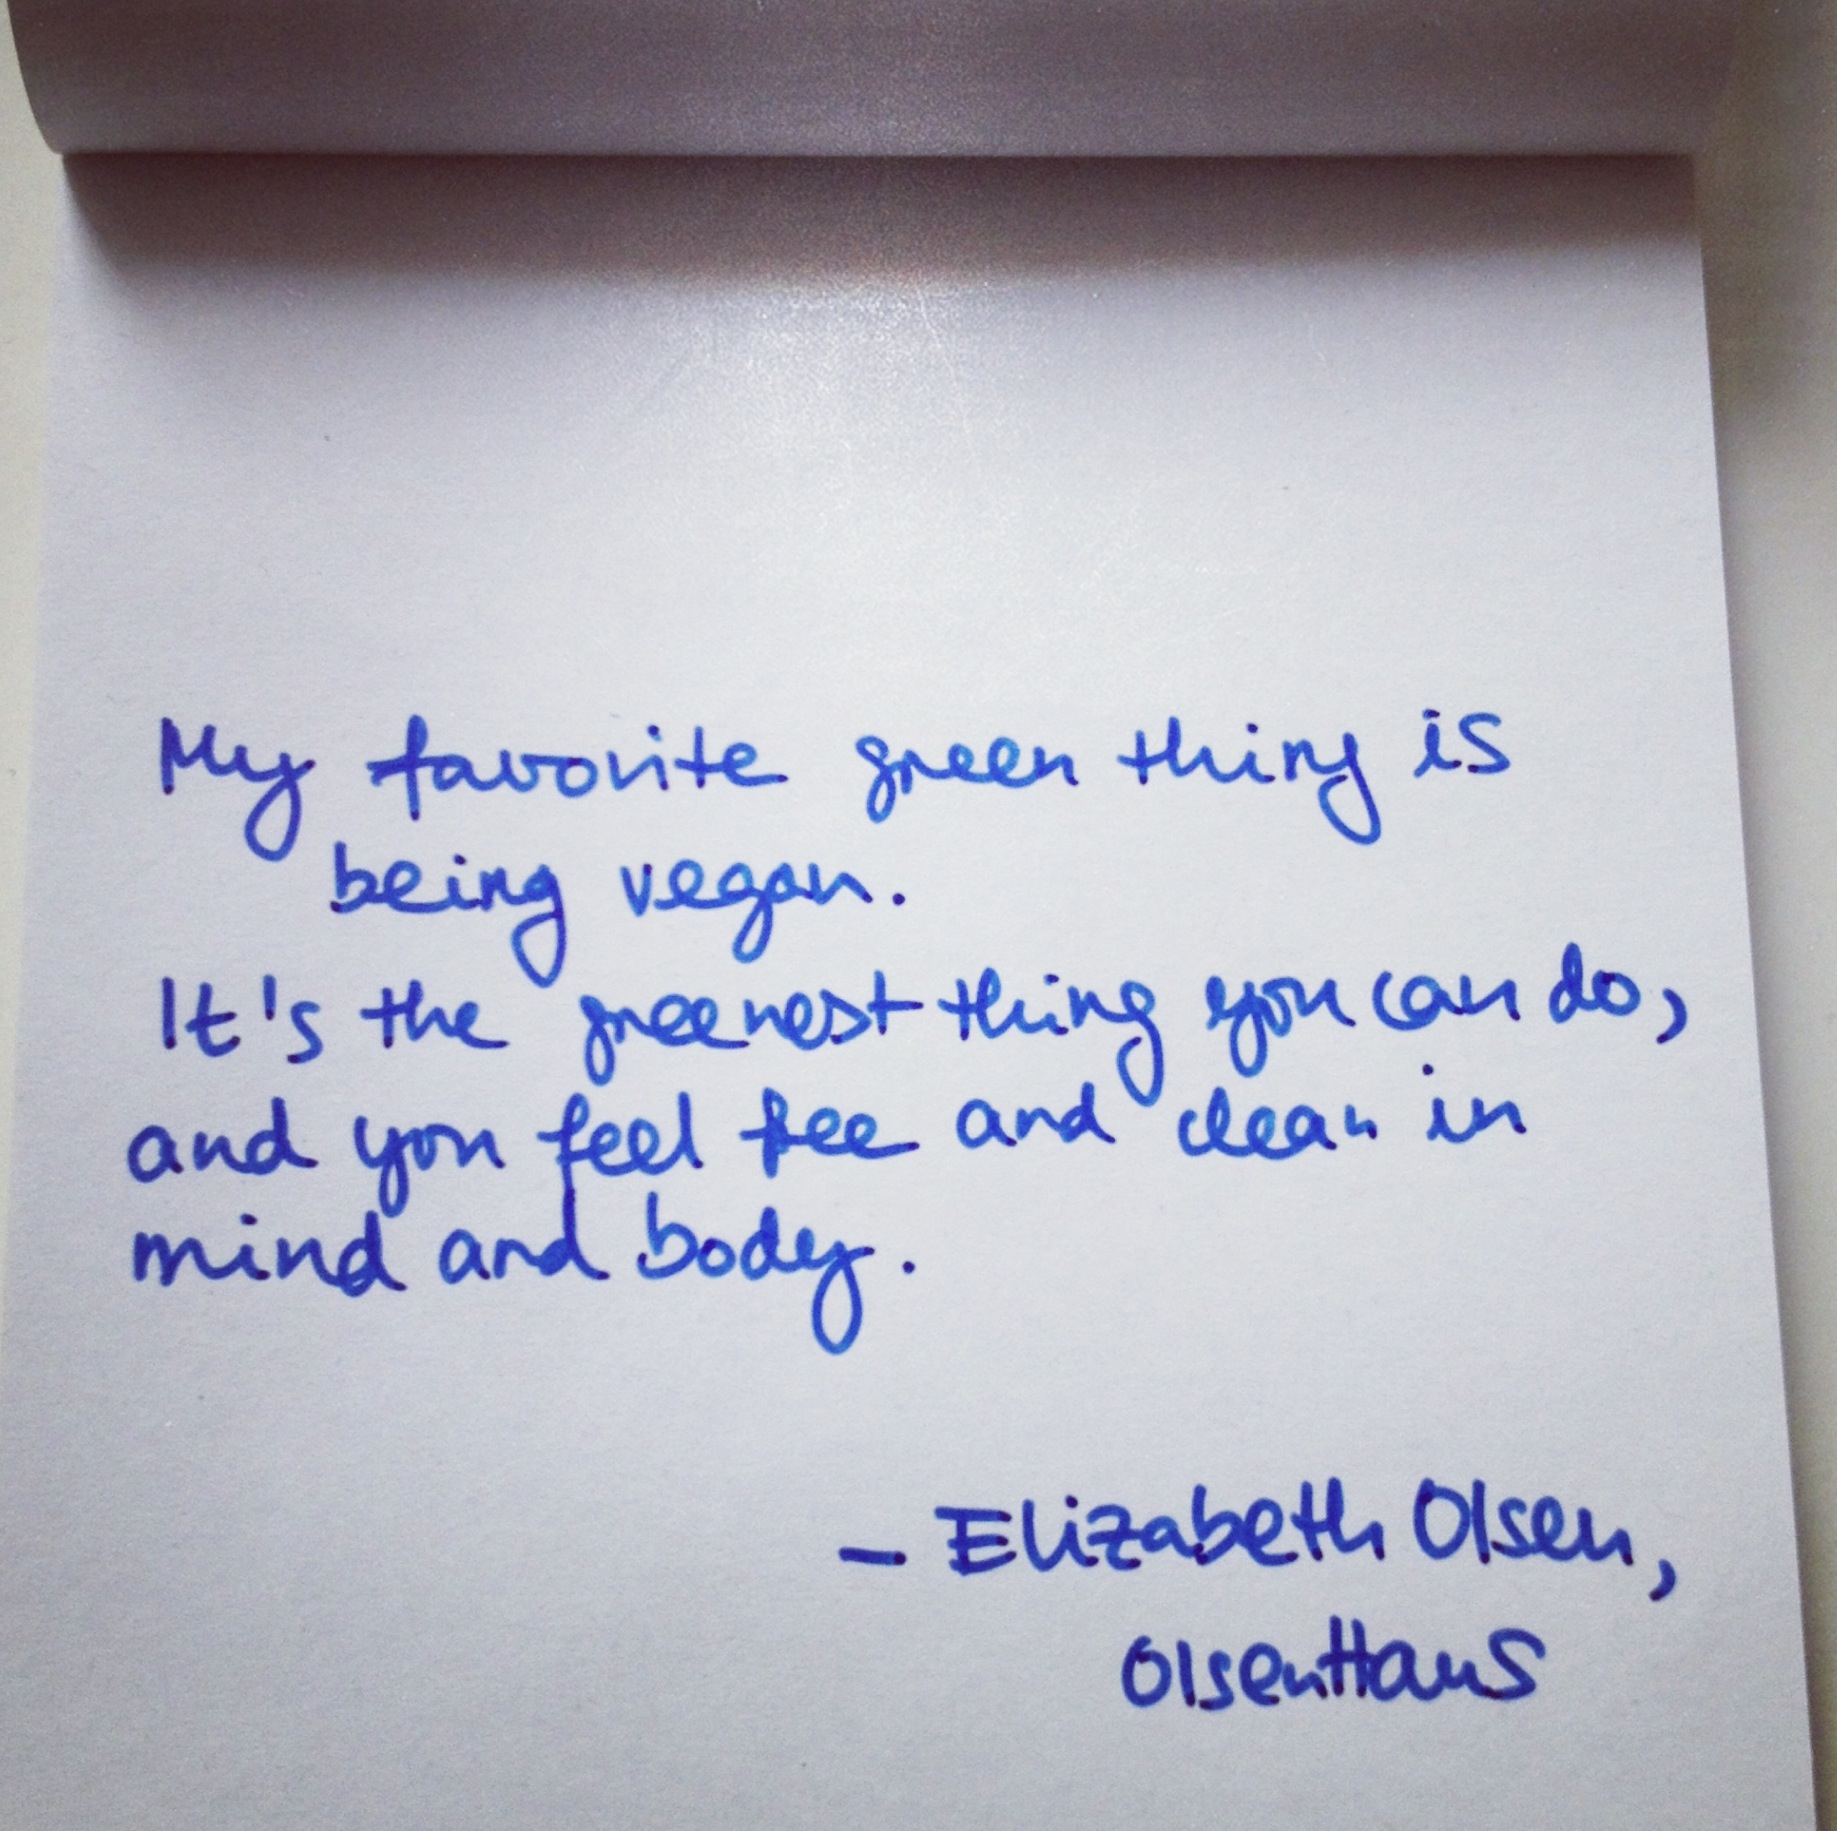 My favorite green thing is
being vegan.
It's the greenest thing you can do,
and you feel free and clean in
mind and body.
– Elizabeth Olsen,
OlsenHaus